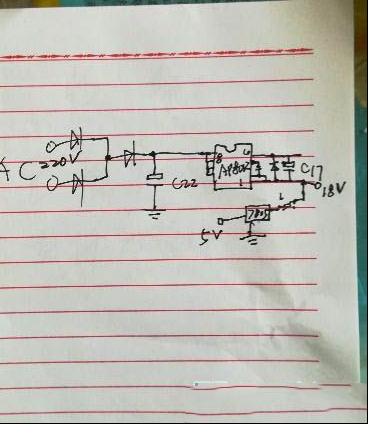 AC 220V
C22
8
AP8012
1
C17
18V
7805
5V